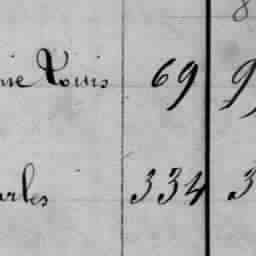 8
nie Louis 69 9
arles 334 3